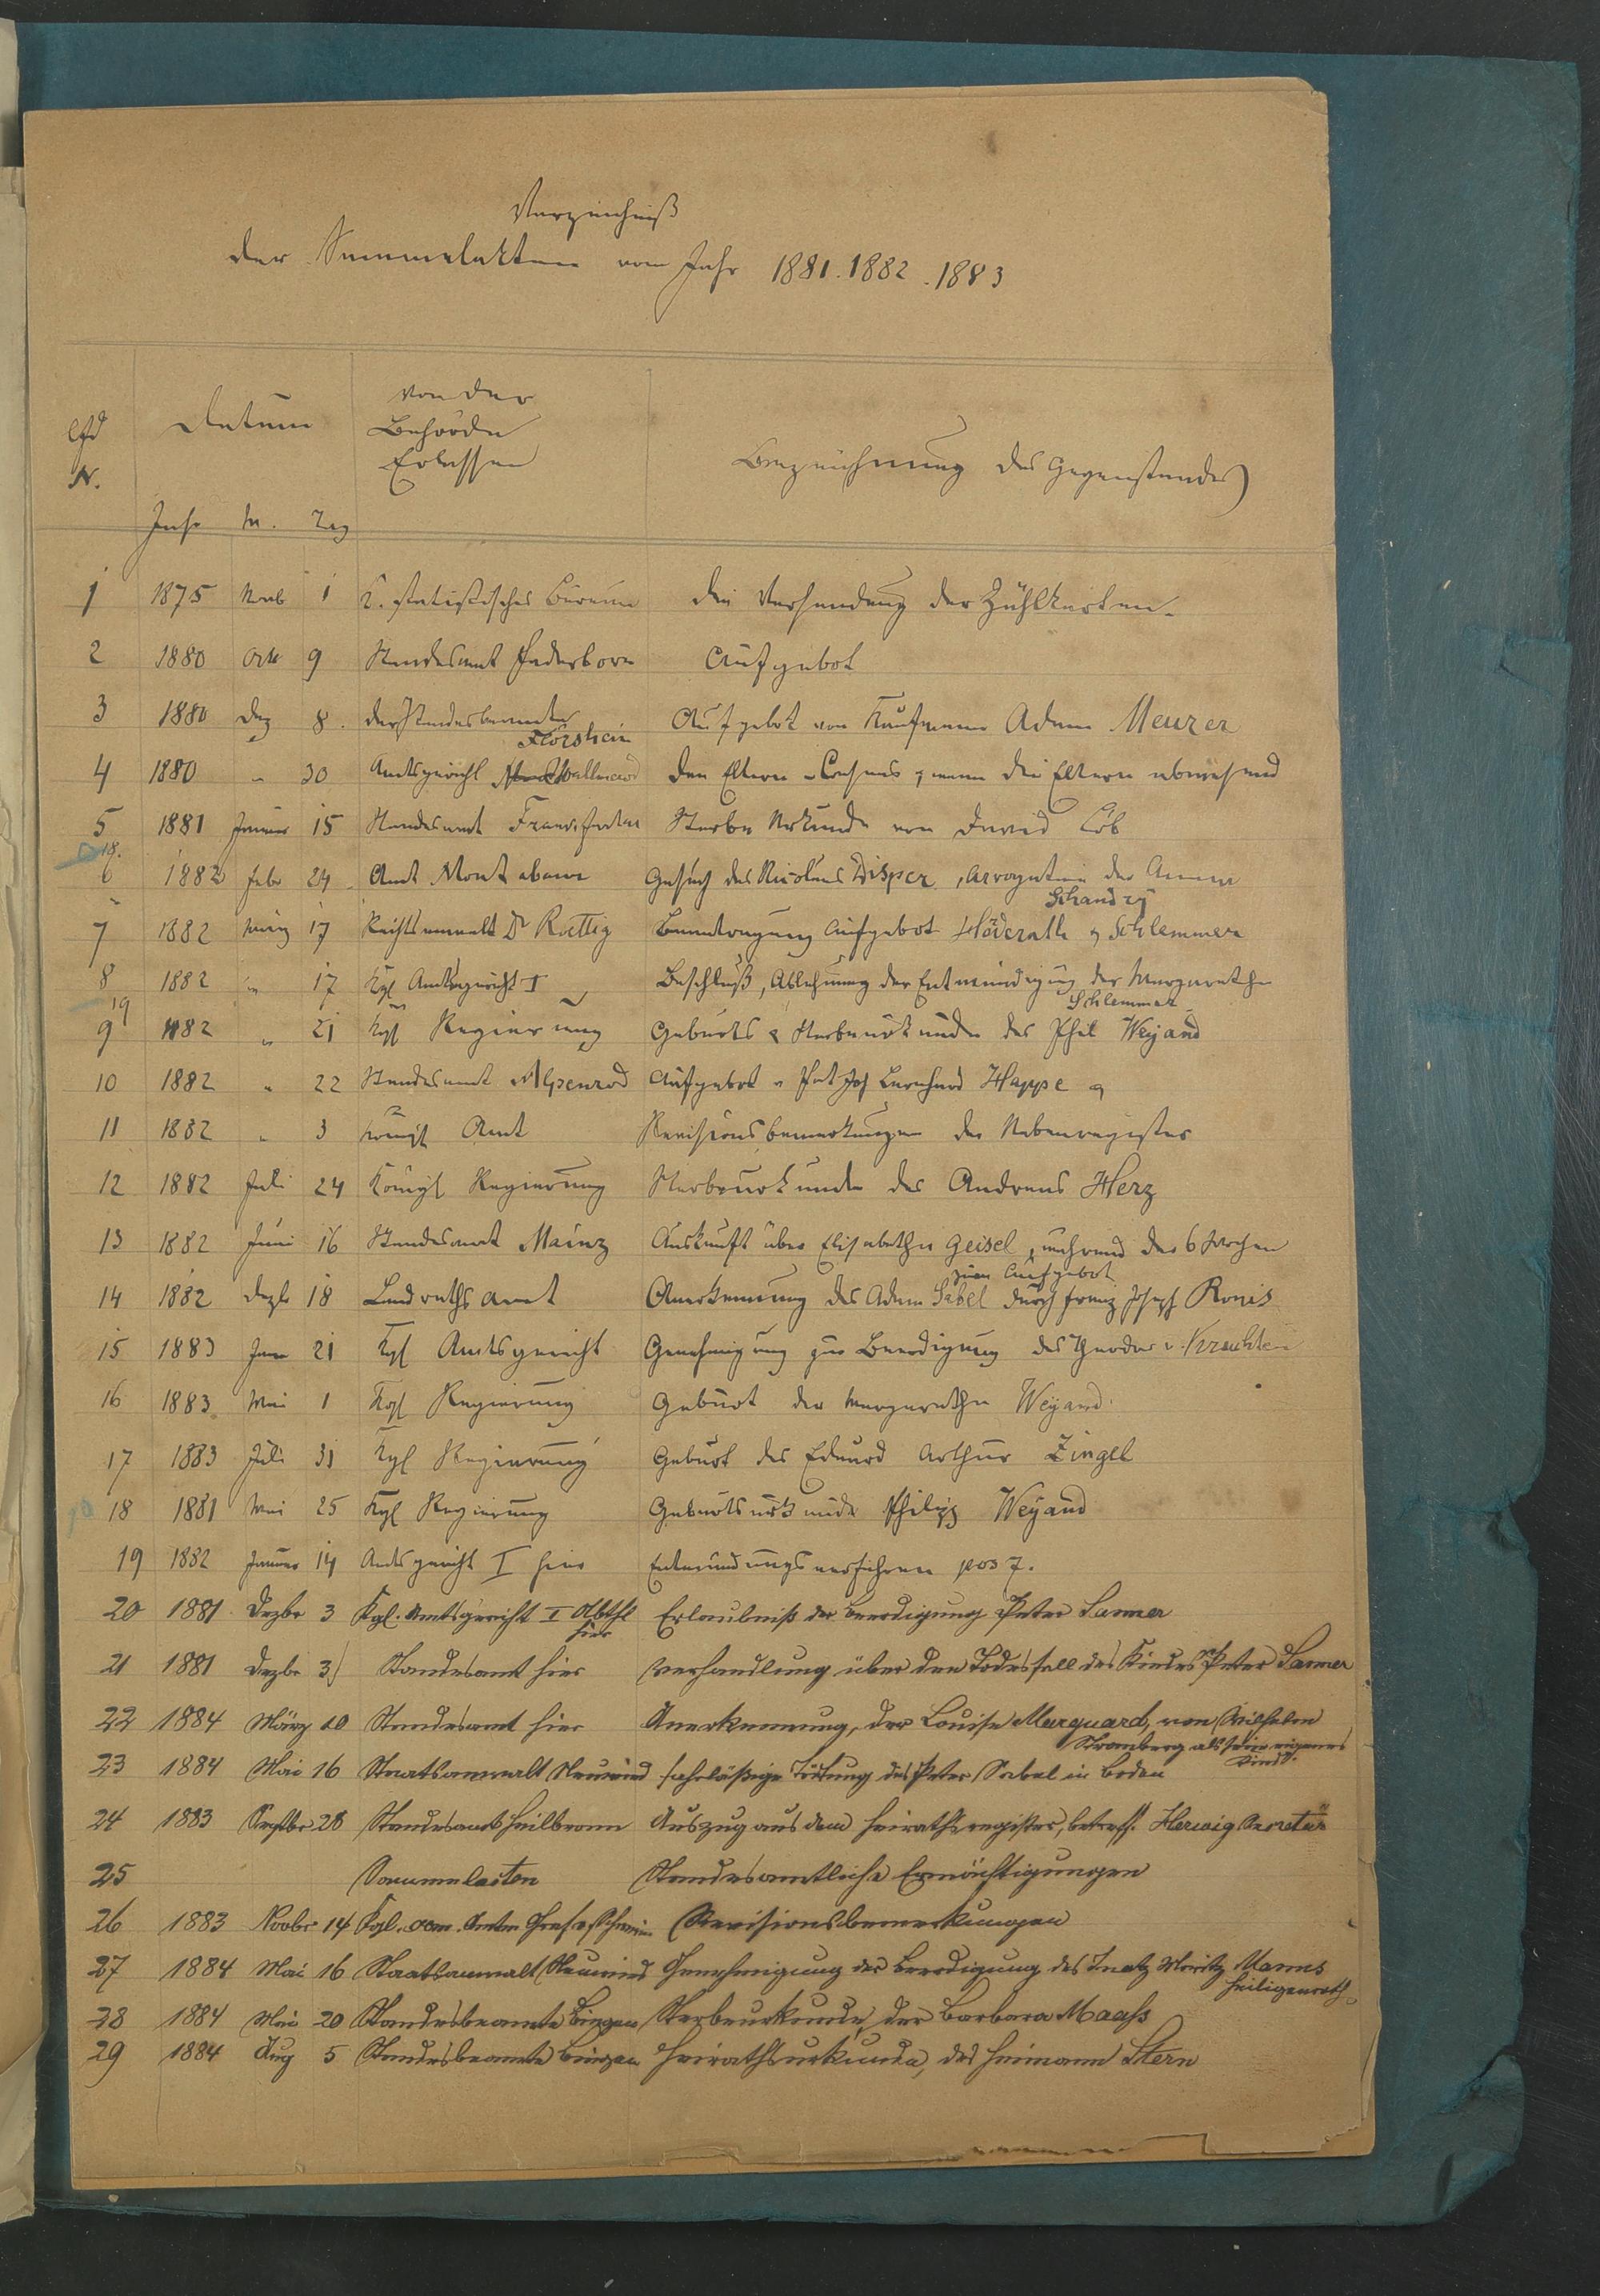 Verzeichniß
der Sammelakten vom Jahr 1881. 1882. 1883
lfd N. Datum Von der Behörde Erlassen Bezeichnung des Gegenstandes
Jahr M. Tag
1 1875 1 K. statistisches Bureau die Versendung der Zählkarten.
2 1880 Okt 9 Standesamt Paderborn Aufgebot
3 1880 Dez 8. der Standesbeamte Florsheim Aufgebot von Kaufmann Adam Meurer
4 1880 " 30 Amtsgericht Wallmerod den Eltern Consens, wenn die Eltern abwesend
5 1881 Januar 15 Standesamt Sterbe Urkunde von David Löb
18.
6 1882 Febr 24 Amt Montabaur Gesuch des Nicolaus Disper, Arrogation der Anna
Schandry
7 1882 März 17 Rechtsanwalt Dr Rattig Beantragung Aufgebot Höderath & Schlemmer
8 1882 " 17 Kgl Amtsgericht I Beschluß, Ablehnung der Entmündigung der Margarethe
Schlemmer
19
9 1882 " 21 Kgl Regierung Geburts & Sterbeurkunde des Phil Weyand
10 1882 " 22 Standesamt Alpenrod Aufgebot v Pet Jos Bernhard Happe
11 1882 " 3 Königl Amt Revisionsbemerkungen der Nebenregister
12 1882 Juli 24 Königl Regierung Sterbeurkunde des Andreas Herz
13 1882 Juni 16 Standesamt Mainz Auskunft über Elisabetha Geisel, während der 6 Wochen
zum Aufgebot
14 1882 Dezbr 18 Landrathsamt Anerkennung des Adam Sabel durch Franz Joseph Ronis
15 1883 Jan 21 Kgl Amtsgericht Genehmigung zur Beerdigung des Theodor v. Krachten
16 1883 Mai 1 Kgl Regierung Geburt der Margarethe Weyand.
17 1883 Juli 31 Kgl Regierung Geburt des Eduard Arthur Zingel
18 1881 Mai 25 Kgl Regierung Geburtsurkunde Philipp Weyand
19 1882 Januar 14 Amtsgericht I hier Entmündungsverfahren pos 7.
20 1881 Dezbr 3 Kgl. Amtsgericht I Abthl hier Erlaubniß der Beerdigung Peter Sanner
21 1881 Dezbr 3 Standesamt hier Verhandlung über den Todesfall des Kindes Peter Sanner
22 1884 März 10 Standesamt hier Anerkennung, der Louise Marquard, von Wilhelm
Stromberg als sein eigenes Kind.
23 1884 Mai 16 Staatsanwalt Neuwied fahrläßige Tödtung des Peter Sabel in Boden
24 1883 Septbr 28 Standesamt Heilbronn Auszug aus dem Heirathsregister, betreff. Herwig Secretär
25 Sammlacten Standesamtliche Ermächtigungen
26 1883 Novbr 14 Kgl. Revisionsbemerkungen
27 1884 Mai 16 Staatsanwalt Neuwied Genehmigung der Beerdigung des Moritz Manns
Heiligenroth
28 1884 Mai 20 Standesbeamte Bingen Sterbeurkunde, der Barbara Maaß
29 1884 Aug 5 Standesbeamte Bingen Heirathsurkunde, des Heimann Stern